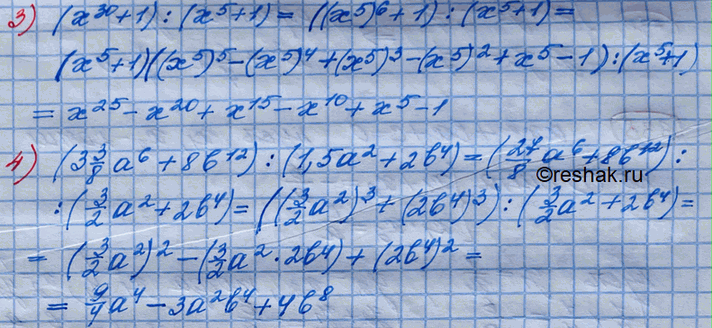 3) (x³⁰+1) : (x⁵+1) = ((x⁵)⁶+1) : (x⁵+1) =
(x⁵+1)((x⁵)⁵-(x⁵)⁴+(x⁵)³-(x⁵)²+x⁵-1) : (x⁵+1)
= x²⁵-x²⁰+x¹⁵-x¹⁰+x⁵-1
4) (3 3/8 a⁶+8b¹²) : (1,5a²+2b⁴) = (27/8 a⁶+8b¹²) :
: (3/2 a²+2b⁴) = ((3/2 a²)³+(2b⁴)³) : (3/2 a²+2b⁴) =
= (3/2 a²)²-(3/2 a²·2b⁴)+(2b⁴)² =
= 9/4 a⁴-3a²b⁴+4b⁸
©reshak.ru